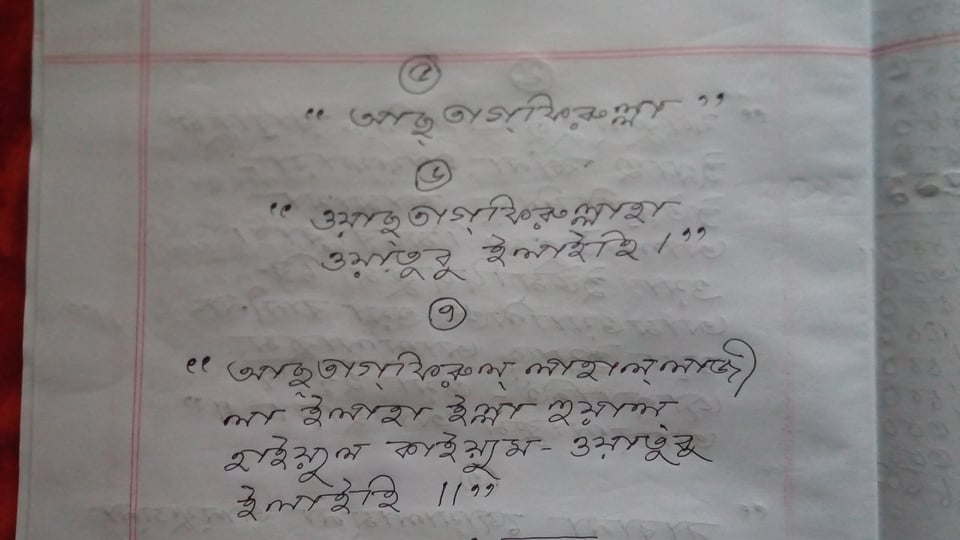 ৫
“ আছ্তাগ্ফিরুল্লা ”
৬
“ ওয়াছ্তাগ্ফিরুল্লাহা
ওয়াতুবু ইলাইহি।”
৭
“ আছ্তাগ্ফিরুল্ লাহাল্লাজী
লা ইলাহা ইল্লা হুয়াল্
হাইয়্যুল কাইয়্যুম- ওয়াতুবু
ইলাইহি ॥”